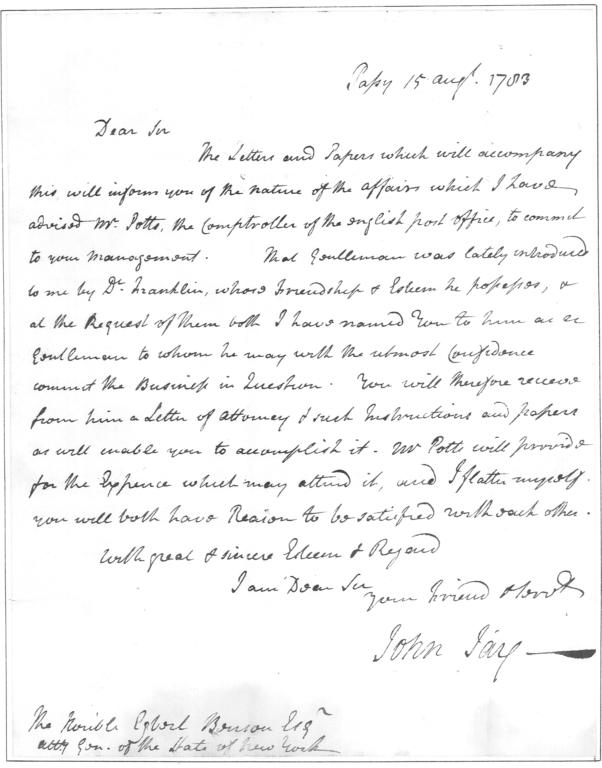 Passy 15 Augt. 1783
Dear Sir
The Letters and Papers which will accompany
this will inform you of the nature of the affairs which I have
advised Mr. Potts, the Comptroller of the english post office, to commit
to your management. That Gentleman was lately introduced
to me by Dr. Franklin, whose Friendship & Esteem he possesses, &
at the Request of them both I have named You to him as a
Gentleman to whom he may with the utmost Confidence
commit the Business in Question. You will therefore recieve
from him a Letter of attorney & such Instructions and papers
as will enable you to accomplish it. Mr Potts will provide
for the Expence which may attend it, and I flatter myself
you will both have Reason to be satisfied with each other.
With great & sincere Esteem & Regard
I am Dear Sir
your Friend & Servt
John Jay
The Honble Egbert Benson Esqr
atty Gen. of the State of New York